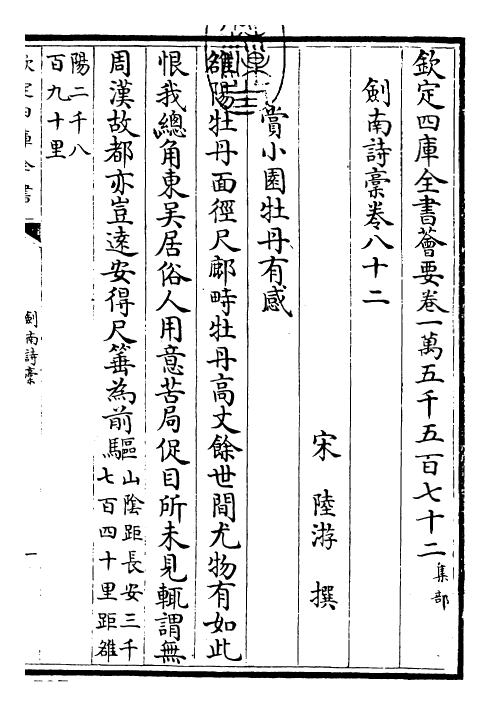 欽定四庫全書薈要卷一萬五千五百七十二 集部
劍南詩藁卷八十二
宋 陸游 撰
賞小園牡丹有感
雒陽牡丹面徑尺鄜畤牡丹高丈餘世間尤物有如此
恨我總角東吳居俗人用意苦局促目所未見輒謂無
周漢故都亦豈遠安得尺箠為前驅山陰距長安三千七百四十里距雒
陽二千八百九十里
欽定四庫全書
劍南詩藁
一